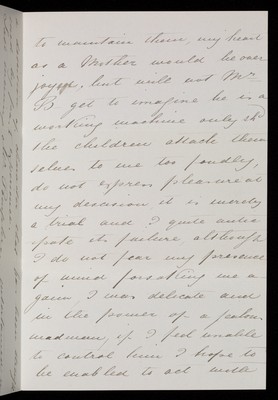 to maintain them, my heart
as a Mother would be over
joyed, but will not Mr
B get to imagine he is a
working machine only & shd
the children attach them
selves to me too fondly,
do not express pleasure at
my decision it is merely
a trial and I quite antic
ipate its failure, although
I do not fear my presence
of mind forsaking me a
gain, I was delicate and
in the power of a jealous
madman, if I feel unable
to control him I hope to
be enabled to act with